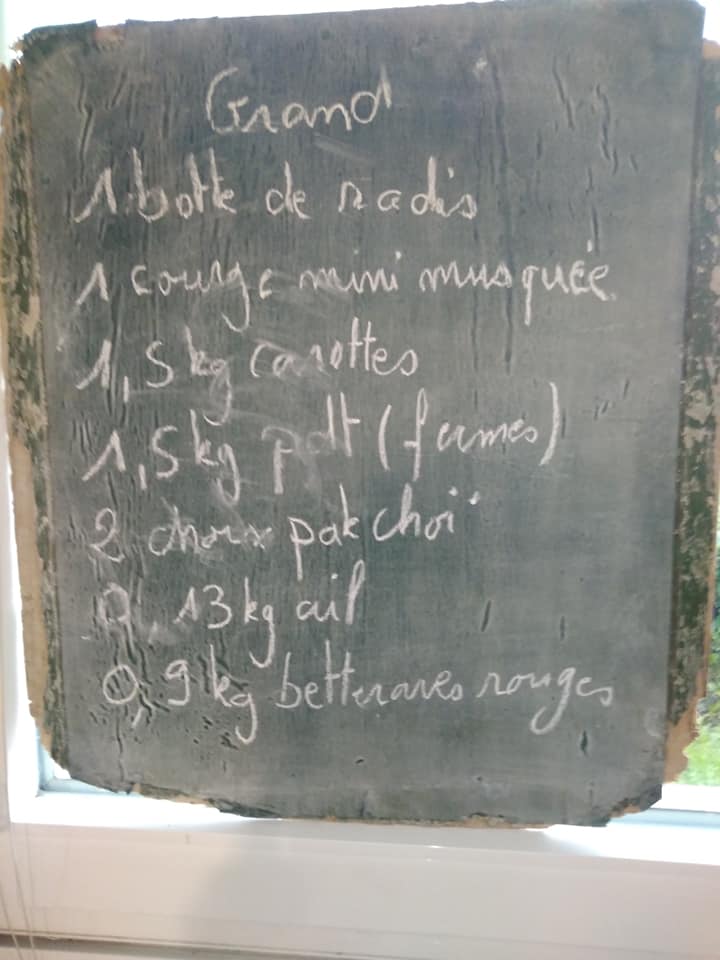 Grand
1 botte de radis
1 courge mini musquée
1,5 kg carottes
1,5 kg pdt (fermes)
2 choux pak choï
0,13 kg ail
0,9 kg betteraves rouges